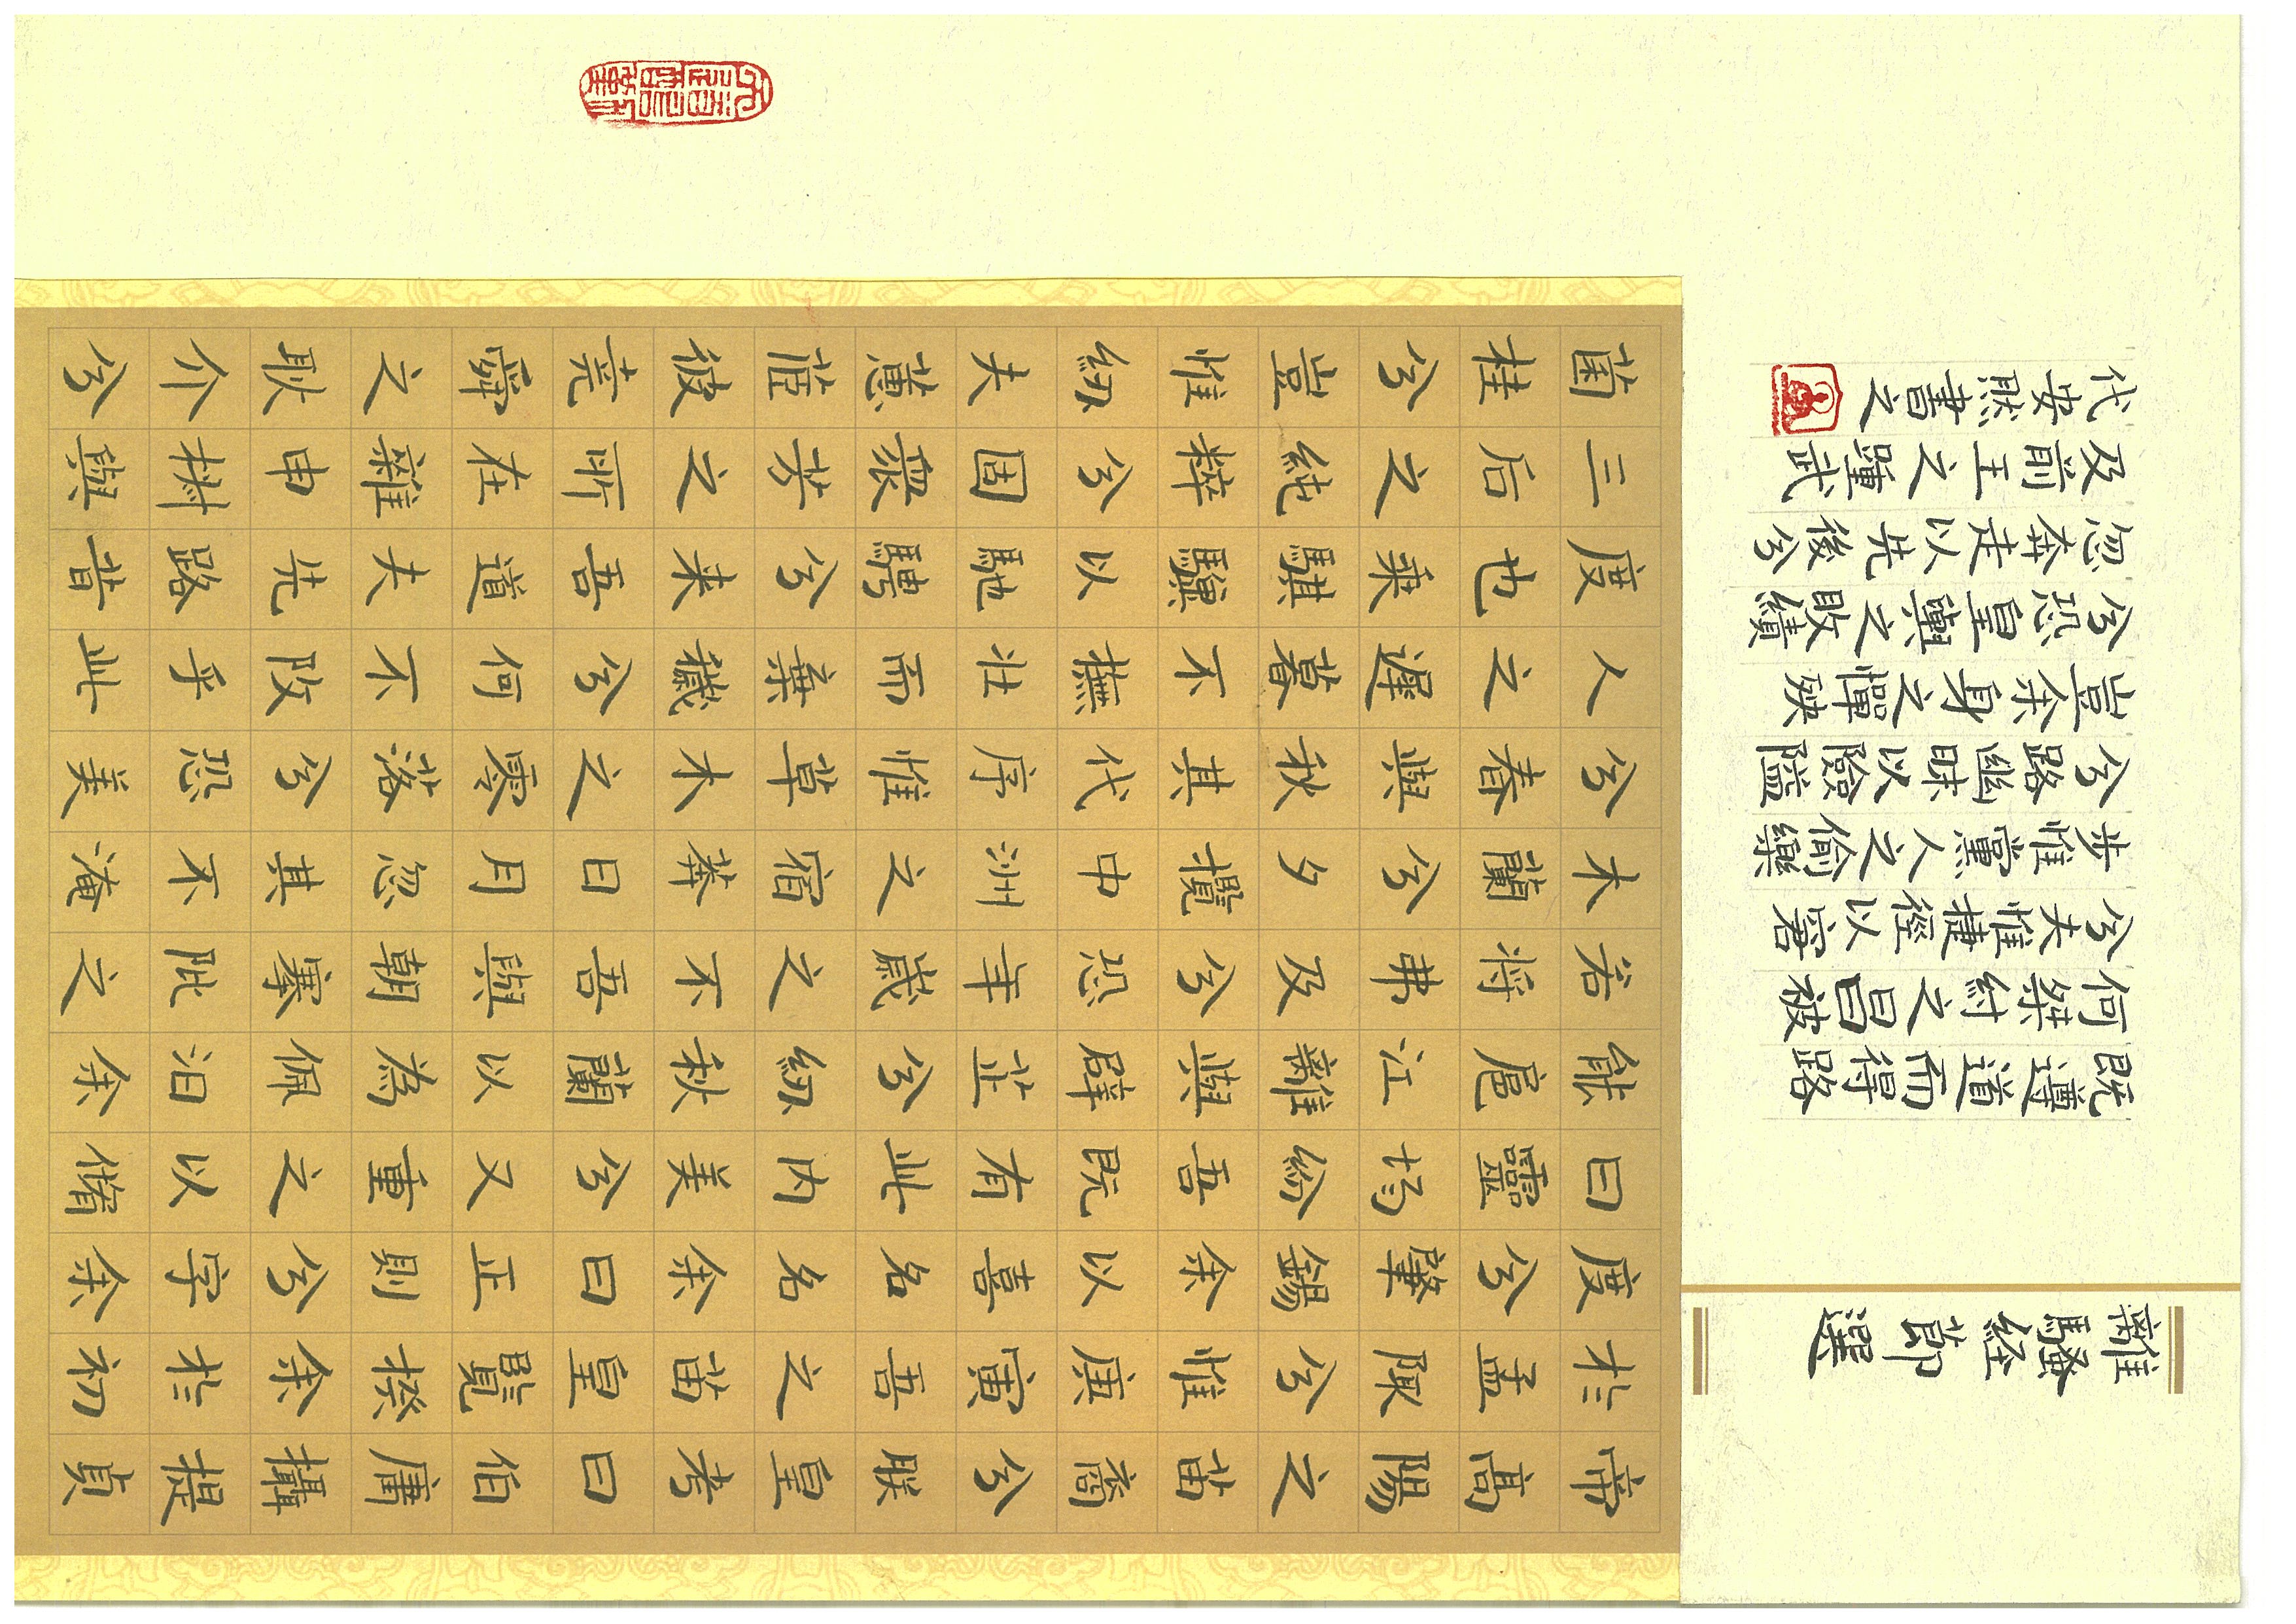 離騷経節選
帝高陽之苗裔兮朕皇考曰伯庸攝提貞
於孟陬兮惟庚寅吾之苗皇覽揆余於初
度兮肇錫余以喜名名余曰正則兮字余
曰靈均紛吾既有此內美兮又重之以脩
能扈江離與辟芷兮紉秋蘭以為佩汩余
若將弗及兮恐年歲之不吾與朝搴阰之
木蘭兮夕攬中洲之宿莽日月忽其不淹
兮春與秋其代序惟草木之零落兮恐美
人之遲暮不撫壯而棄穢兮何不改乎此
度也乘騏驥以馳騁兮来吾道夫先路昔
三后之純粹兮固衆芳之所在雜申椒與
菌桂兮豈惟紉夫蕙茝彼堯舜之耿介兮
既遵道而得路
何桀紂之昌被
兮夫惟捷徑以窘
步惟黨人之偷樂
兮路幽昧以險隘
豈余身之憚殃
兮恐皇輿之敗績
忽奔走以先後兮
及前王之踵武
代安然書之